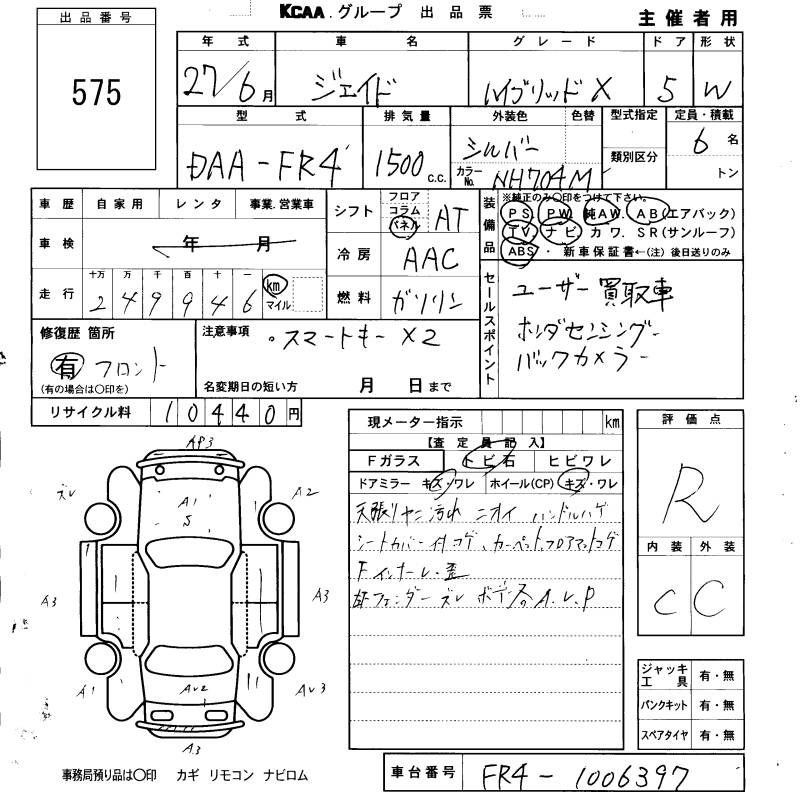 出品番号
575
KCAA.グループ 出品票
主催者用
年式 車名 グレード ドア 形状
27/6月 ジェイド ハイブリッドX 5 W
型式 排気量 外装色 色替 型式指定 定員・積載
DAA-FR4 1500c.c. シルバー 6名
カラーNo. NH704M 類別区分 トン
車歴 自家用 レンタ 事業.営業車
車検 年 月
走行 十万 万 千 百 十 一
249946 km マイル
シフト フロア コラム パネル AT
冷房 AAC
燃料 ガソリン
装備品 ※純正のみ〇印をつけて下さい。
PS PW 純AW. AB(エアバック)
TV ナビ カワ. SR(サンルーフ)
ABS・新車保証書←(注)後日送りのみ
セールスポイント
ユーザー買取車
ホンダセンシング
バックカメラー
修復歴 箇所
有 フロント
(有の場合は〇印を)
注意事項
・スマートキー×2
名変期日の短い方 月 日まで
リサイクル料 10440円
現メーター指示 km
【査定員記入】
Fガラス トビ石 ヒビワレ
ドアミラー キズ・ワレ ホイール(CP) キズ・ワレ
天張リヤニ汚れ ニオイ ハンドルハゲ
シートカバー付コゲ、カーペット、フロアマットコゲ
Fインナーレ・歪
フェンダーズレ ボデー A.U.P
評価点
R
内装 外装
C C
ジャッキ工具 有・無
パンクキット 有・無
スペアタイヤ 有・無
AP3
ズレ A1 S A2
A3 A3
A1 AU2 AU3
A3
事務局預り品は〇印 カギ リモコン ナビロム
車台番号 FR4-1006397